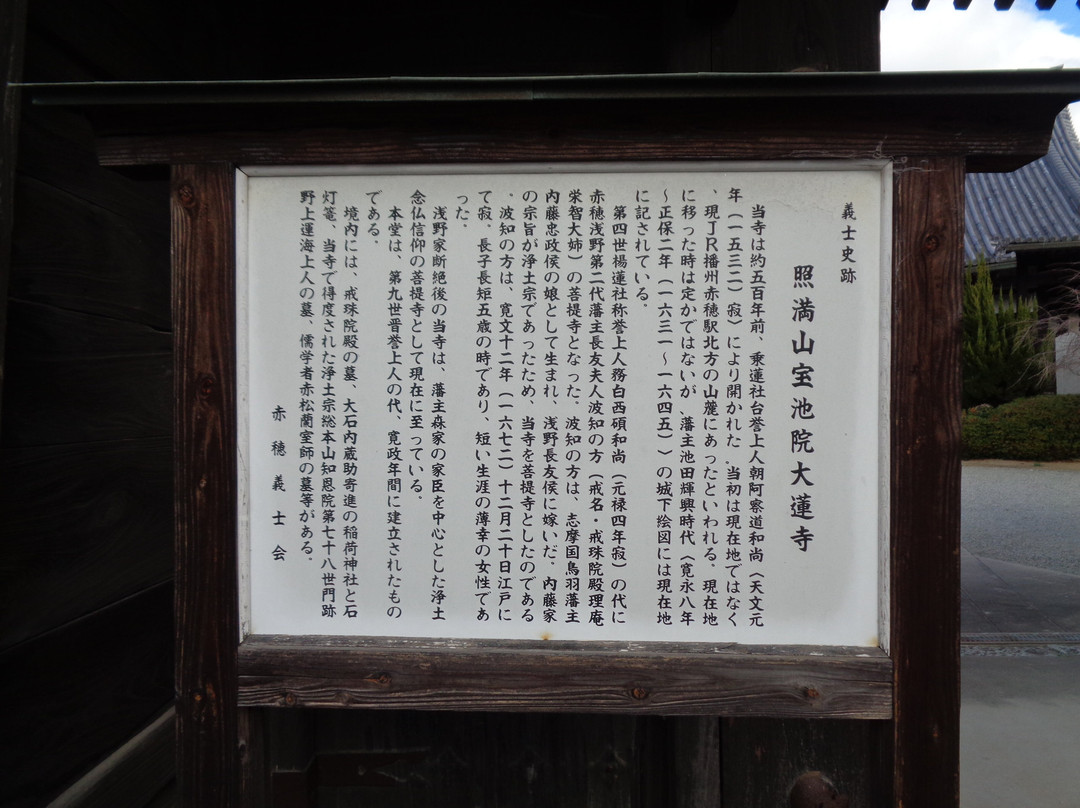 義士史跡
照満山宝池院大蓮寺
当寺は約五百年前、乗蓮社台誉上人朝阿察道和尚（天文元
年（一五三二）寂）により開かれた。当初は現在地ではなく
、現ＪＲ播州赤穂駅北方の山麓にあったといわれる。現在地
に移った時は定かではないが、藩主池田輝興時代（寛永八年
～正保二年（一六三一～一六四五））の城下絵図には現在地
に記されている。
第四世楊蓮社称誉上人務白西碩和尚（元禄四年寂）の代に
赤穂浅野第二代藩主長友夫人波知の方（戒名・戒珠院殿理庵
栄智大姉）の菩提寺となった。波知の方は、志摩国鳥羽藩主
内藤忠政侯の娘として生まれ、浅野長友侯に嫁いだ。内藤家
の宗旨が浄土宗であったため、当寺を菩提寺としたのである
。波知の方は、寛文十二年（一六七二）十二月二十日江戸に
て寂、長子長矩五歳の時であり、短い生涯の薄幸の女性であ
った。
浅野家断絶後の当寺は、藩主森家の家臣を中心とした浄土
念仏信仰の菩提寺として現在に至っている。
本堂は、第九世晋誉上人の代、寛政年間に建立されたもの
である。
境内には、戒珠院殿の墓、大石内蔵助寄進の稲荷神社と石
灯篭、当寺で得度された浄土宗総本山知恩院第七十八世門跡
野上運海上人の墓、儒学者赤松蘭室師の墓等がある。
赤穂義士会